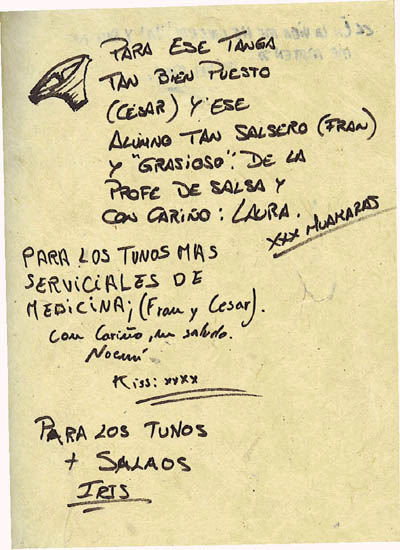 PARA ESE TANGA
TAN BIEN PUESTO
(CÉSAR) Y ESE
ALUMNO TAN SALSERO (FRAN)
Y "GRASIOSO". DE LA
PROFE DE SALSA Y
CON CARIÑO: LAURA.
XXX MUAKARAS
PARA LOS TUNOS MAS
SERVICIALES DE
MEDICINA; (Fran y Cesar).
Con Cariño, un saludo.
Noemí
Kiss: xxxx
PARA LOS TUNOS
+ SALAOS
IRIS